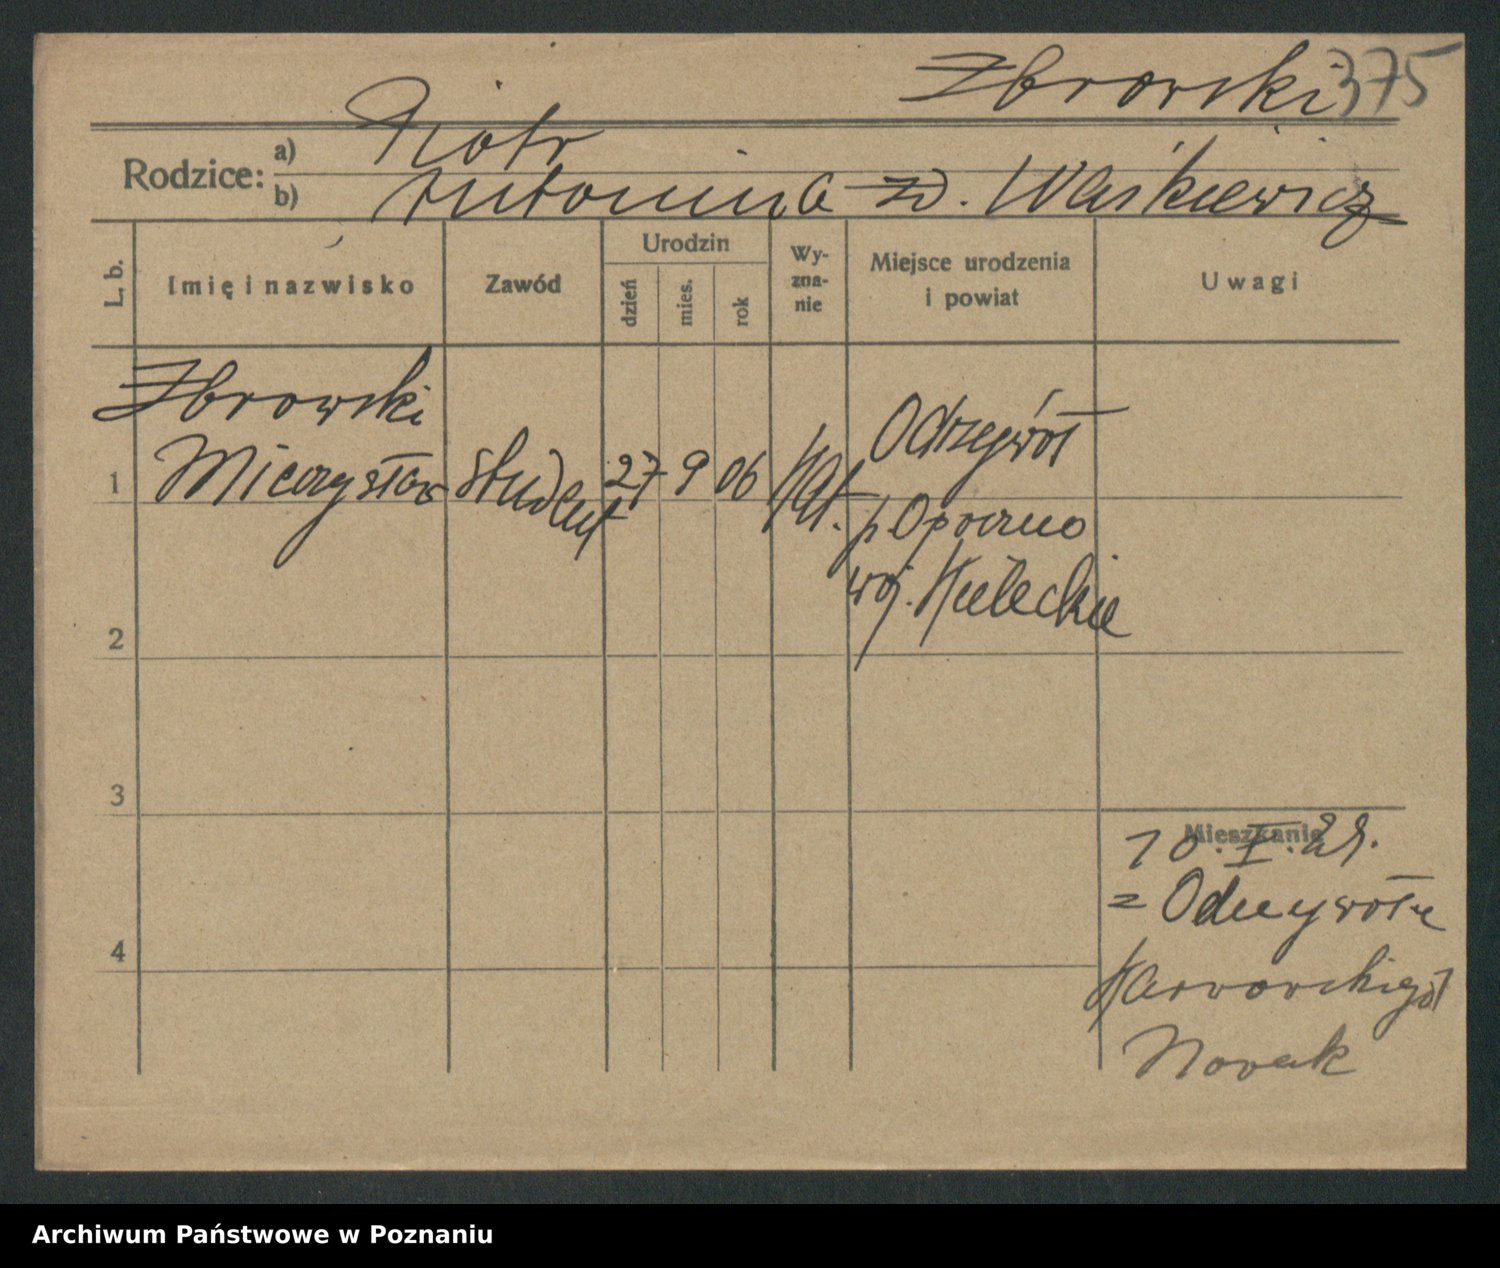 Zbrowski 375
Rodzice:
a) Piotr
b) Antonina zd. Waśkiewicz
L. b.
Imię i nazwisko
Zawód
Urodzin
dzień
mies.
rok
Wy-
zna-
nie
Miejsce urodzenia
i powiat
Uwagi
Zbrowski
1 Mieczysław student 27 9 06 kat. Odrzywół
p Opoczno
woj. Kieleckie
2
3
4
Mieszkanie
10. X. 29.
z Odrzywołu
Nowak
Archiwum Państwowe w Poznaniu